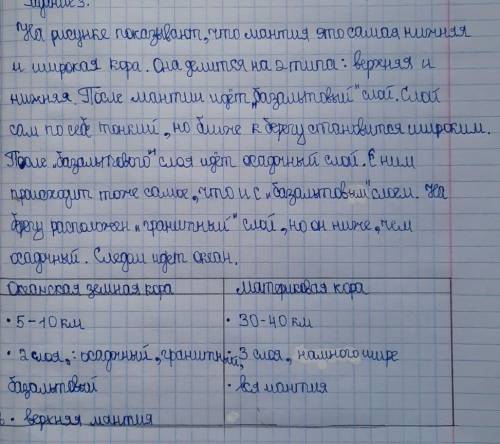 Задание 3.
На рисунке показывают, что мантия это самая нижняя
и широкая кора. Она делится на 2 типа: верхняя и
нижняя. После мантии идёт „базальтовый" слой. Слой
сам по себе тонкий, но ближе к берегу становится широким.
После „базальтового" слоя идёт осадочный слой. С ним
происходит тоже самое, что и с „базальтовым" слоем. На
брегу расположен „гранитный" слой, но он ниже, чем
осадочный. Следом идет океан.
Океанская земная кора
Материковая кора
• 5-10 км
• 30-40 км
• 2 слоя,: осадочный, гранитный,
• 3 слоя, намного шире
базальтовый
• вся мантия
• верхняя мантия